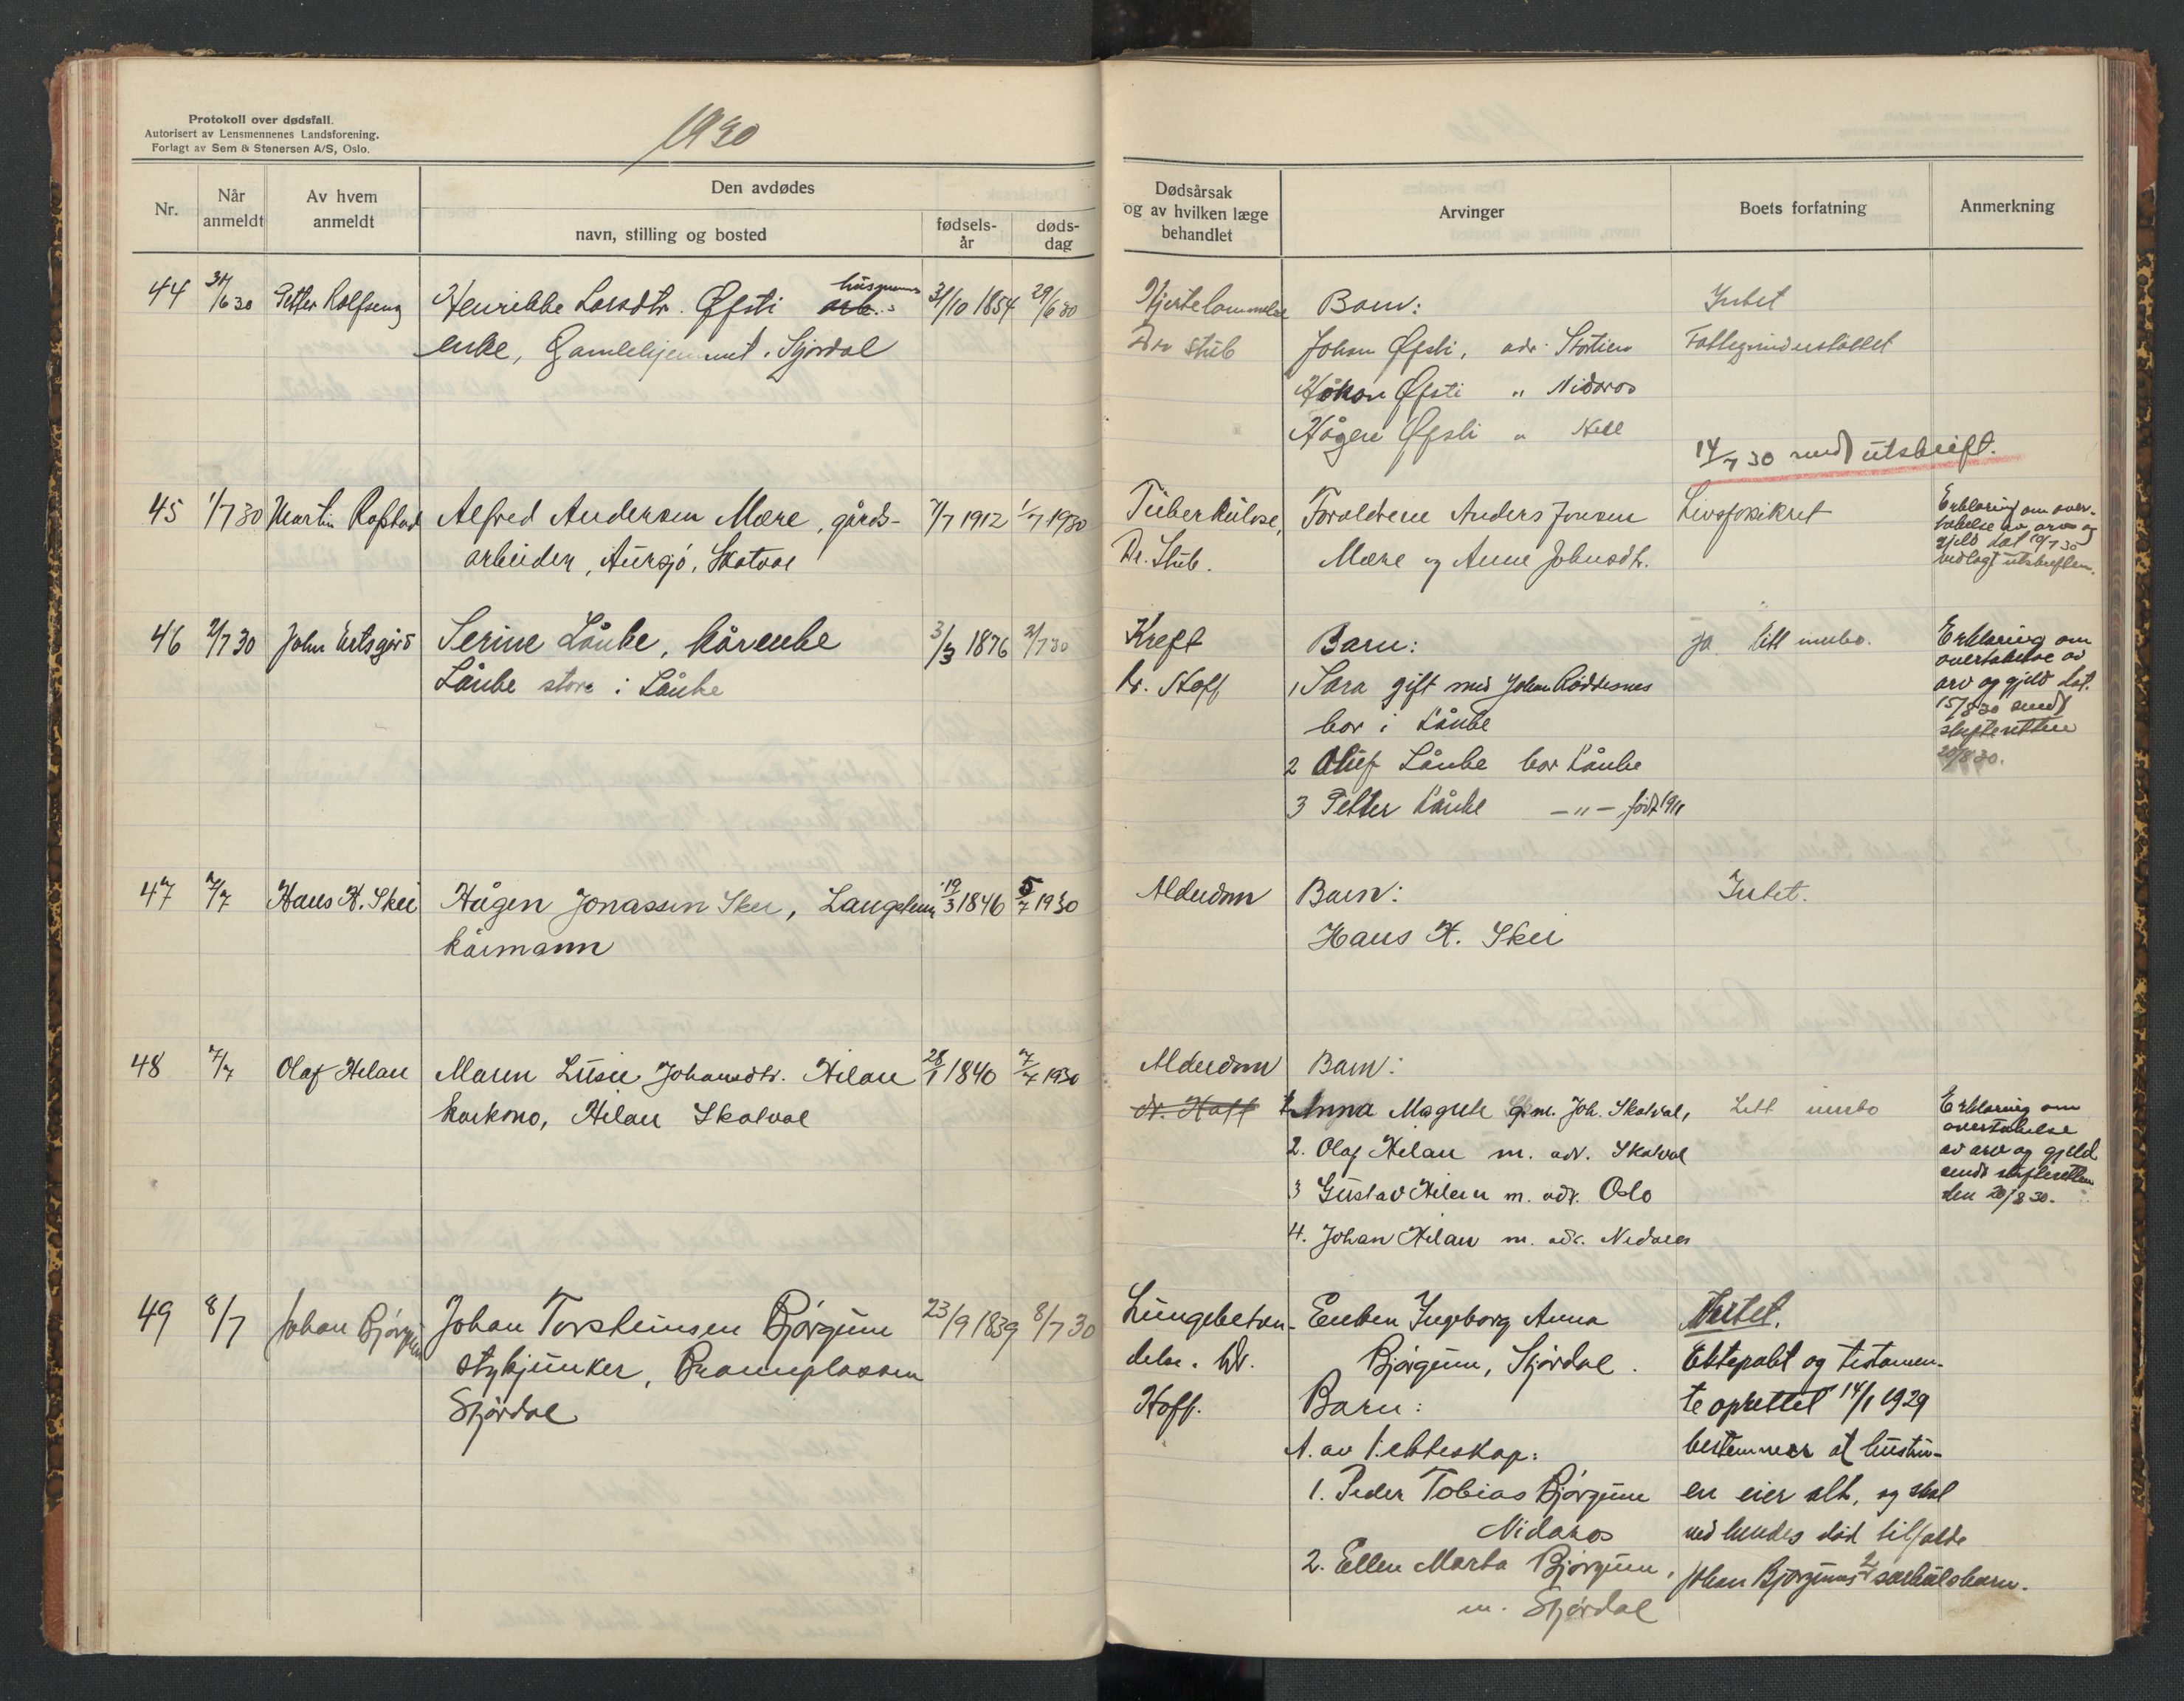 Protokoll over dødsfall.
Autorisert av Lensmennenes Landsforening.
Forlagt av Sem & Stenersen A/S, Oslo.
1930
Nr.
Når anmeldt
Av hvem anmeldt
Den avdødes
navn, stilling og bosted
fødsels-år
døds-dag
Dødsårsak og av hvilken læge behandlet
Arvinger
Boets forfatning
Anmerkning
44 30/6 30 Petter Rolfseng Henrikke Larsdtr. Øfsti husmanns 31/10 1854 29/6 30
enke, Gamlehjemmet, Stjørdal
Hjertelammelse Barn: Intet
Dr Stub Johan Øfsti, adr. Fattigunderstøttet
Håkon Øfsti " Nidaros
Hågen Øfsti " Hell
14/7 30 sendt utskrift.
45 1/7 30 Martin Røfstad Alfred Andersen Mære, gårds- 7/7 1912 1/7 1930
arbeider, Aursjø, Skatval
Tuberkulose, Foreldrene Anders Jonsen Livsforsikret
Dr. Stub. Mære og Anne Johnsdtr.
Erklæring om over-
takelse av arv og
gjeld dat 10/7 30
vedlagt utskriften.
46 2/7 30 John Ertsgård Serine Lånke, kårenke 3/3 1876 2/7 30
Lånke store i Lånke
Kreft Barn: Ja litt innbo.
Dr. Hoff 1 Sara gift med Johan Røddesnes
bor i Lånke
2 Oluf Lånke bor Lånke
3 Petter Lånke — " — født 1911
Erklæring om
overtakelse av
arv og gjeld dat.
15/8 30 sendt
skifteretten
20/8 30.
47 7/7 Hans H. Skei Hågen Jonassen Skei, Langstein 19/3 1846 5/7 1930
kårmann
Alderdom Barn: Intet.
Hans H. Skei
48 7/7 Olaf Hilan Maren Lusie Johansdtr. Hilan 28/1 1840 7/7 1930
kårkono, Hilan Skatval
Alderdom Barn:
dr. Hoff 1. Anna Magrete g. m. Joh. Skatval, Litt innbo
2. Olaf Hilan m. adr. Skatval
3 Gustav Hilan m. adr. Oslo
4. Johan Hilan m. adr. Nidaros
Erklæring om
overtakelse
av arv og gjeld
sendt skifteretten
den 20/8 30.
49 8/7 Johan Bjørgum Johan Torsteinsen Bjørgum 23/9 1839 8/7 30
stykjunker, Prærneplassen
Stjørdal
Lungebeten- Enken Ingeborg Anna Intet.
delse. Dr. Bjørgum, Stjørdal. Ektepakt og testamen-
Hoff. Barn: te oprettet 14/1 1929
A. av 1. ekteskap: bestemmer at hustru-
1. Peder Tobias Bjørgum en eier alt, og skal
Nidaros ved hendes død tilfalde
2. Ellen Marta Bjørgum, Johan Bjørgums 2 særkulsbarn.
m. Stjørdal